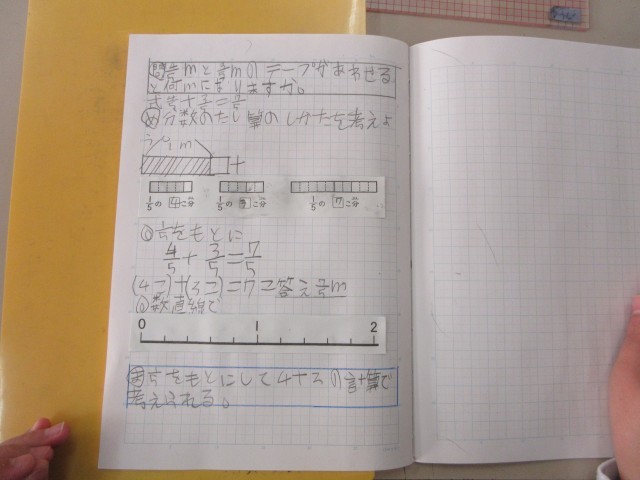 問 4/5mと3/5mのテープがあわせる
と何mになりますか。
式 4/5+3/5=7/5
め 分数のたし算のしかたを考えよ
う
1m
+
1/5の 4 こ分 1/5の 3 こ分 1/5の 7 こ分
1/5をもとに
4/5+3/5=7/5
(4こ)+(3こ)=7こ 答え 7/5m
数直線で
0 1 2
ま 1/5をもとにして4+3の計算で
考えられる。